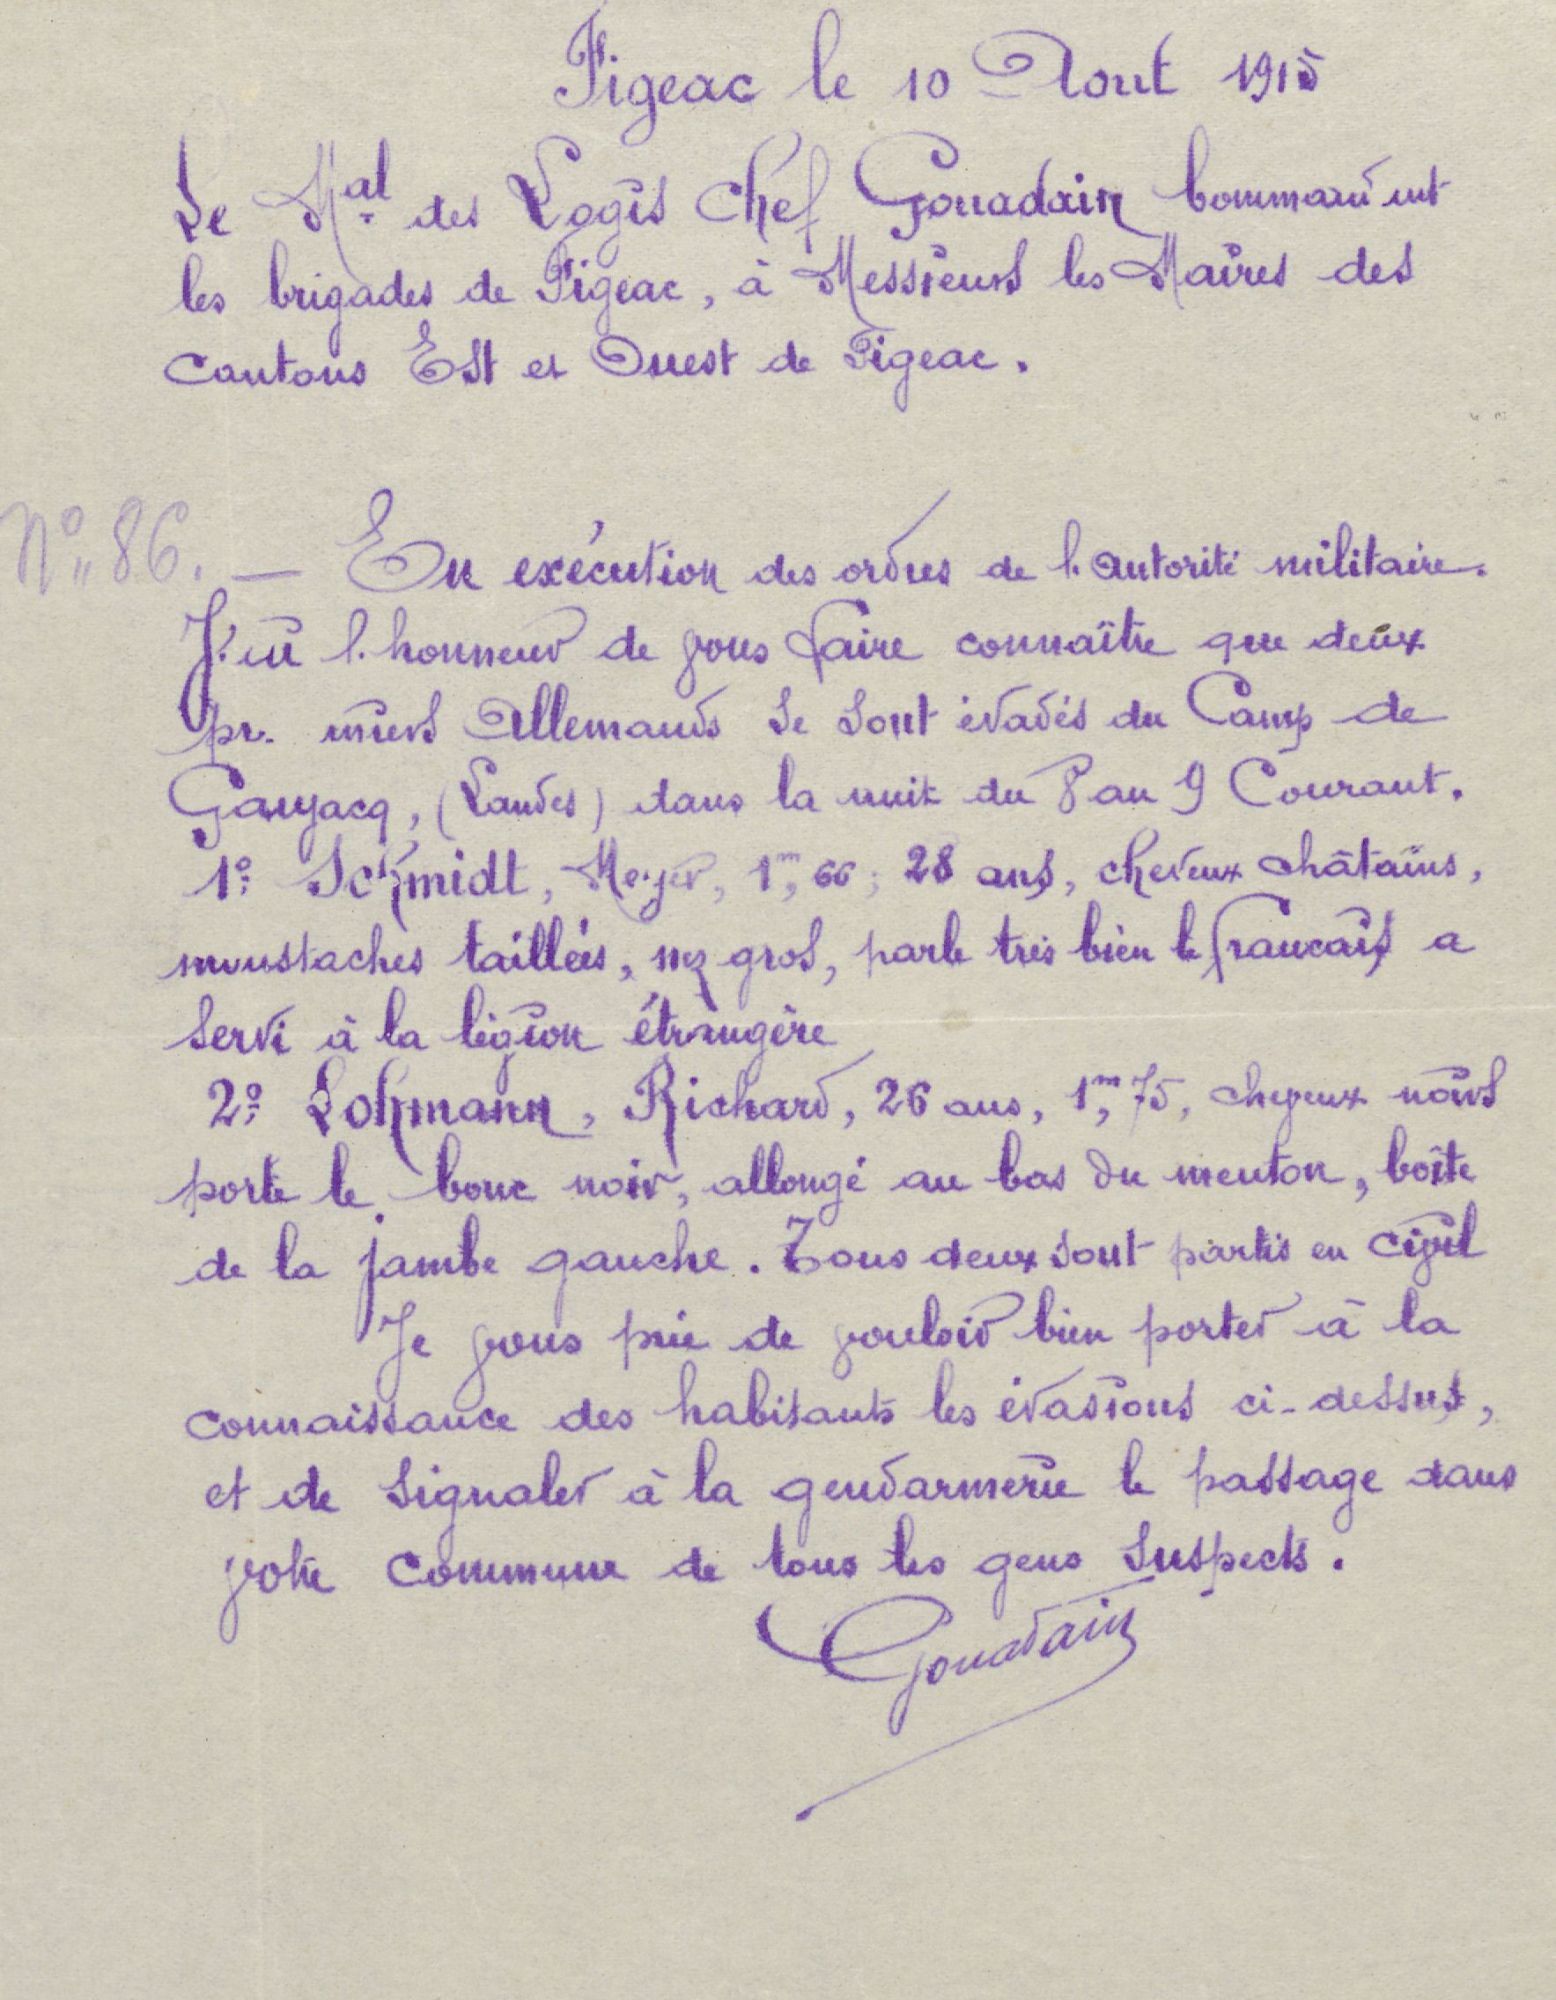 Figeac le 10 Aout 1915
Le Mal des Logis Chef Gouadain Commandant
les brigades de Figeac, à Messieurs les Maires des
Cantons Est et Ouest de Figeac.
N° 86. — En exécution des ordres de l'autorité militaire.
J'ai l'honneur de vous faire connaître que deux
prisonniers Allemands se sont évadés du Camp de
Gaujacq, (Landes) dans la nuit du 8 au 9 Courant.
1° Schmidt, Meyer, 1m,66; 28 ans, cheveux châtains,
moustaches taillées, nez gros, parle très bien le francais a
servi à la légion étrangère
2° Lohmann, Richard, 26 ans, 1m,75, cheveux noirs
porte le bouc noir, allongé au bas du menton, boîte
de la jambe gauche. Tous deux sont partis en civil
Je vous prie de vouloir bien porter à la
connaissance des habitants les évasions ci-dessus,
et de signaler à la gendarmerie le passage dans
votre commune de tous les gens suspects.
Gouadain